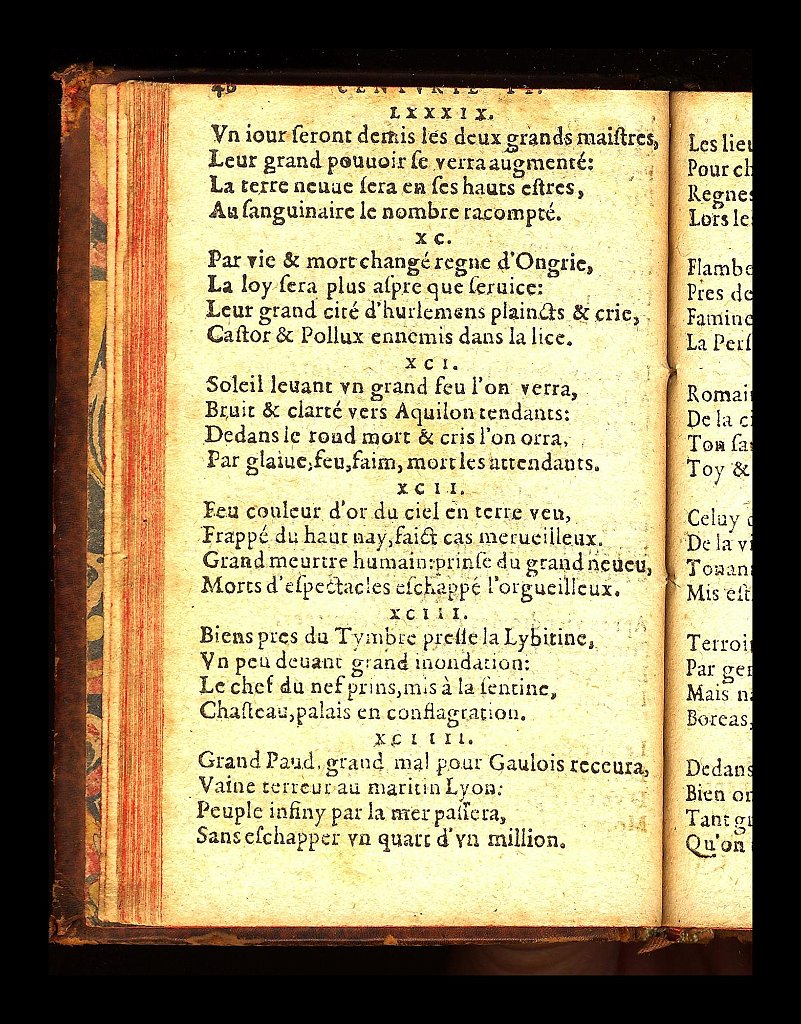 48 CENTVRIE II.
LXXXIX.
Vn iour ſeront demis les deux grands maiſtres,
Leur grand pouuoir ſe verra augmenté:
La terre neuue ſera en ſes hauts eſtres,
Au ſanguinaire le nombre racompté.
XC.
Par vie & mort changé regne d'Ongrie,
La loy ſera plus aſpre que ſeruice:
Leur grand cité d'hurlemens plaincts & crie,
Caſtor & Pollux ennemis dans la lice.
XCI.
Soleil leuant vn grand feu l'on verra,
Bruit & clarté vers Aquilon tendants:
Dedans le rond mort & cris l'on orra,
Par glaiue, feu, faim, mort les attendants.
XCII.
Feu couleur d'or du ciel en terre veu,
Frappé du haut nay, faict cas merueilleux.
Grand meurtre humain: prinſe du grand neueu,
Morts d'eſpectacles eſchappé l'orgueilleux.
XCIII.
Biens pres du Tymbre preſſe la Lybitine,
Vn peu deuant grand inondation:
Le chef du nef prins, mis à la ſentine,
Chaſteau, palais en conflagration.
XCIIII.
Grand Paud, grand mal pour Gaulois receura,
Vaine terreur au maritin Lyon:
Peuple infiny par la mer paſſera,
Sans eſchapper vn quart d'vn million.
Les lieu
Pour ch
Regnes
Lors le
Flambe
Pres de
Famine
La Perſ
Romai
De la ci
Ton ſa
Toy &
Celuy
De la vi
Tonan
Mis eſt
Terroi
Par ger
Mais n
Boreas,
Dedans
Bien or
Tant gr
Qu'on